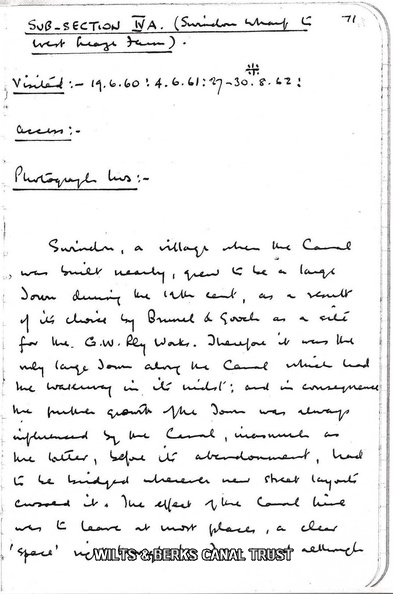 71
SUB-SECTION IVA. (Swindon Wharf to
West Leaze Farm).
Visited:- 19.6.60: 4.6.61: 27-30.8.62:
Access:-
Photograph Nos:-
Swindon, a village when the Canal
was built nearby, grew to be a large
Town during the 19th cent, as a result
of its choice by Brunel & Gooch as a site
for the G.W. Rly Works. Therefore it was the
only large Town along the Canal which had
the waterway in its midst; and in consequence
the further growth of the Town was always
influenced by the Canal, inasmuch as
the latter, before its abandonment, had
to be bridged wherever new street layouts
crossed it. The effect of the Canal line
was to leave at most places, a clear
'space' although
WILTS & BERKS CANAL TRUST